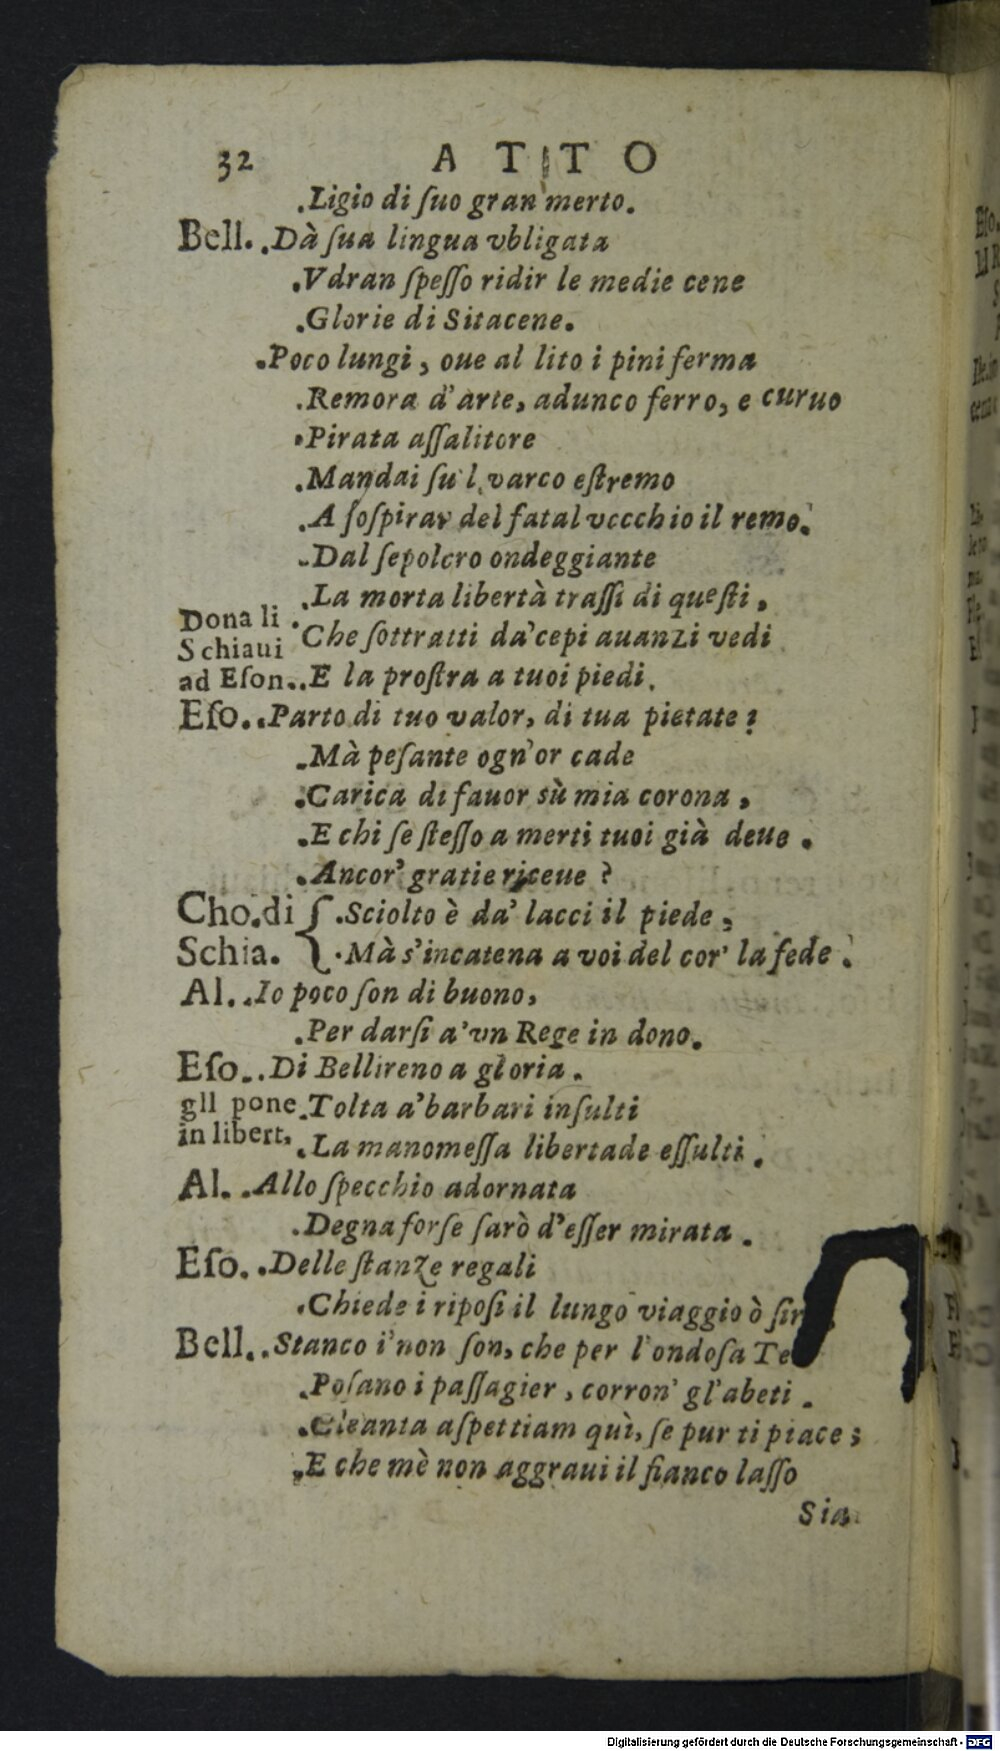 32 ATTO
.Ligio di ſuo gran merto.
Bell. .Dà ſua lingua vbligata
.Vdran ſpeſſo ridir le medie cene
.Glorie di Sitacene.
.Poco lungi, oue al lito i pini ferma
.Remora d'arte, adunco ferro, e curuo
.Pirata aſſalitore
.Mandai ſu'l varco eſtremo
.A ſoſpirar del fatal vccchio il remo.
.Dal ſepolcro ondeggiante
.La morta libertà traſſi di queſti,
Dona li .Che ſottratti da'cepi auanzi vedi
Schiaui
ad Eſon. .E la proſtra a tuoi piedi.
Eſo. .Parto di tuo valor, di tua pietate;
.Mà peſante ogn'or cade
.Carica di fauor sù mia corona,
.E chi ſe ſteſſo a merti tuoi già deue.
.Ancor' gratie riceue?
Cho. di { .Sciolto è da' lacci il piede;
Schia. .Mà s'incatena a voi del cor' la fede.
Al. .Io poco ſon di buono,
.Per darſi a'vn Rege in dono.
Eſo. .Di Bellireno a gloria.
gli pone .Tolta a'barbari inſulti
in libert. .La manomeſſa libertade eſſulti.
Al. .Allo ſpecchio adornata
.Degna forſe ſarò d'eſſer mirata.
Eſo. .Delle ſtanze regali
.Chiede i ripoſi il lungo viaggio ò
Bell. .Stanco i'non ſon, che per l'ondoſa
.Poſano i paſſagier, corron' gl'abeti.
.Cleanta aſpettiam quì, ſe pur ti piace;
.E che mè non aggraui il fianco laſſo
Sia
Digitalisierung gefördert durch die Deutsche Forschungsgemeinschaft - DFG